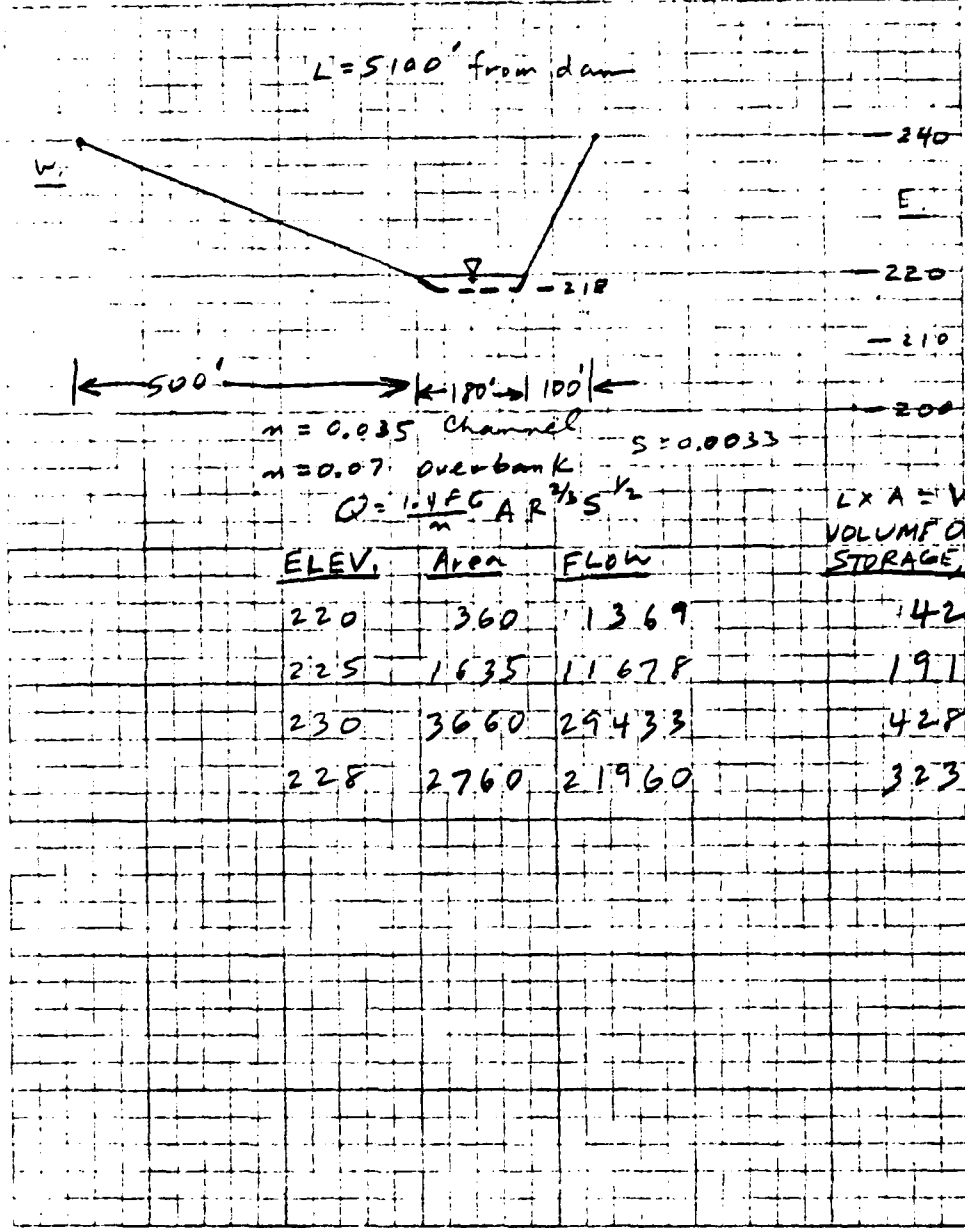 L = 5100' from dam
240
W.
E.
220
218
210
500' 180' 100'
200
n = 0.035 Channel
S = 0.0033
n = 0.07 overbank
Q = 1.486/n A R^2/3 S^1/2
L x A = V
VOLUME O
ELEV. Area FLOW STORAGE,
220 360 1369 42
225 1635 11678 191
230 3660 29433 428
228 2760 21960 323